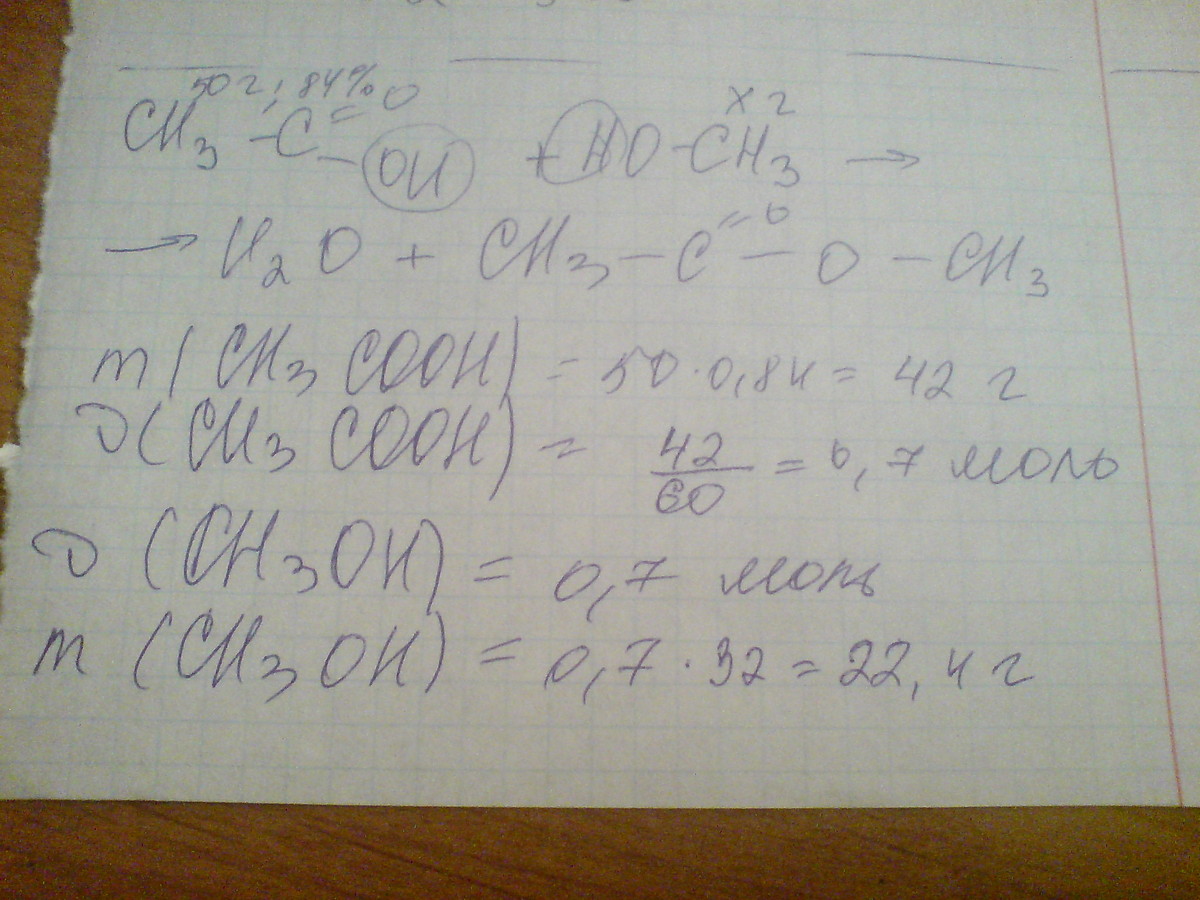 50 г, 84% x г
CH3 - C =O - OH + HO - CH3 →
→ H2O + CH3 - C =O - O - CH3
m (CH3 COOH) = 50 · 0,84 = 42 г
ν (CH3 COOH) = 42/60 = 0,7 моль
ν (CH3OH) = 0,7 моль
m (CH3OH) = 0,7 · 32 = 22,4 г